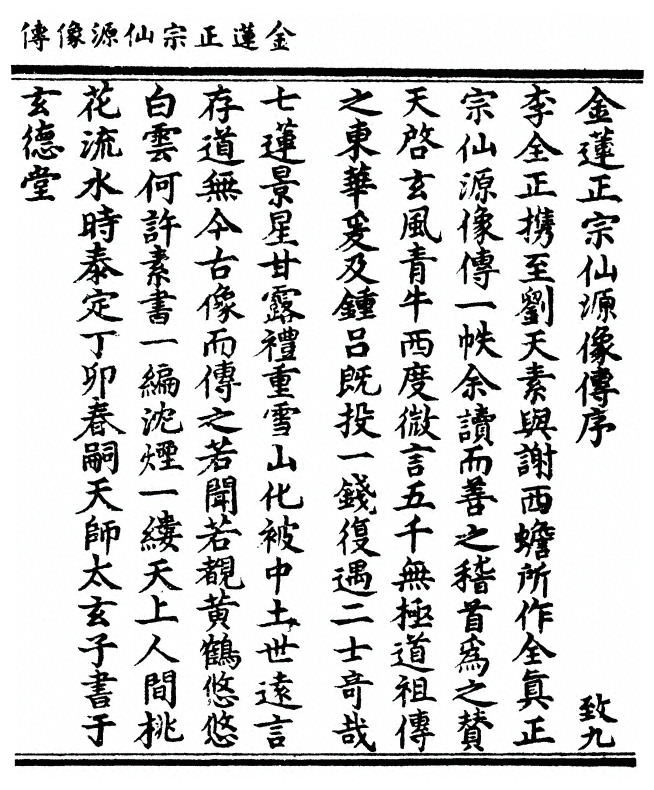 金蓮正宗仙源像傳
金蓮正宗仙源像傳序 致九
李全正攜至劉天素與謝西蟾所作全眞正
宗仙源像傳一帙余讀而善之稽首爲之賛
天啓玄風青牛西度微言五千無極道祖傳
之東華爰及鍾呂既投一錢復遇二士奇哉
七蓮景星甘露禮重雪山化被中土世遠言
存道無今古像而傳之若聞若覩黄鶴悠悠
白雲何許素書一編沈煙一縷天上人間桃
花流水時泰定丁卯春嗣天師太玄子書于
玄德堂